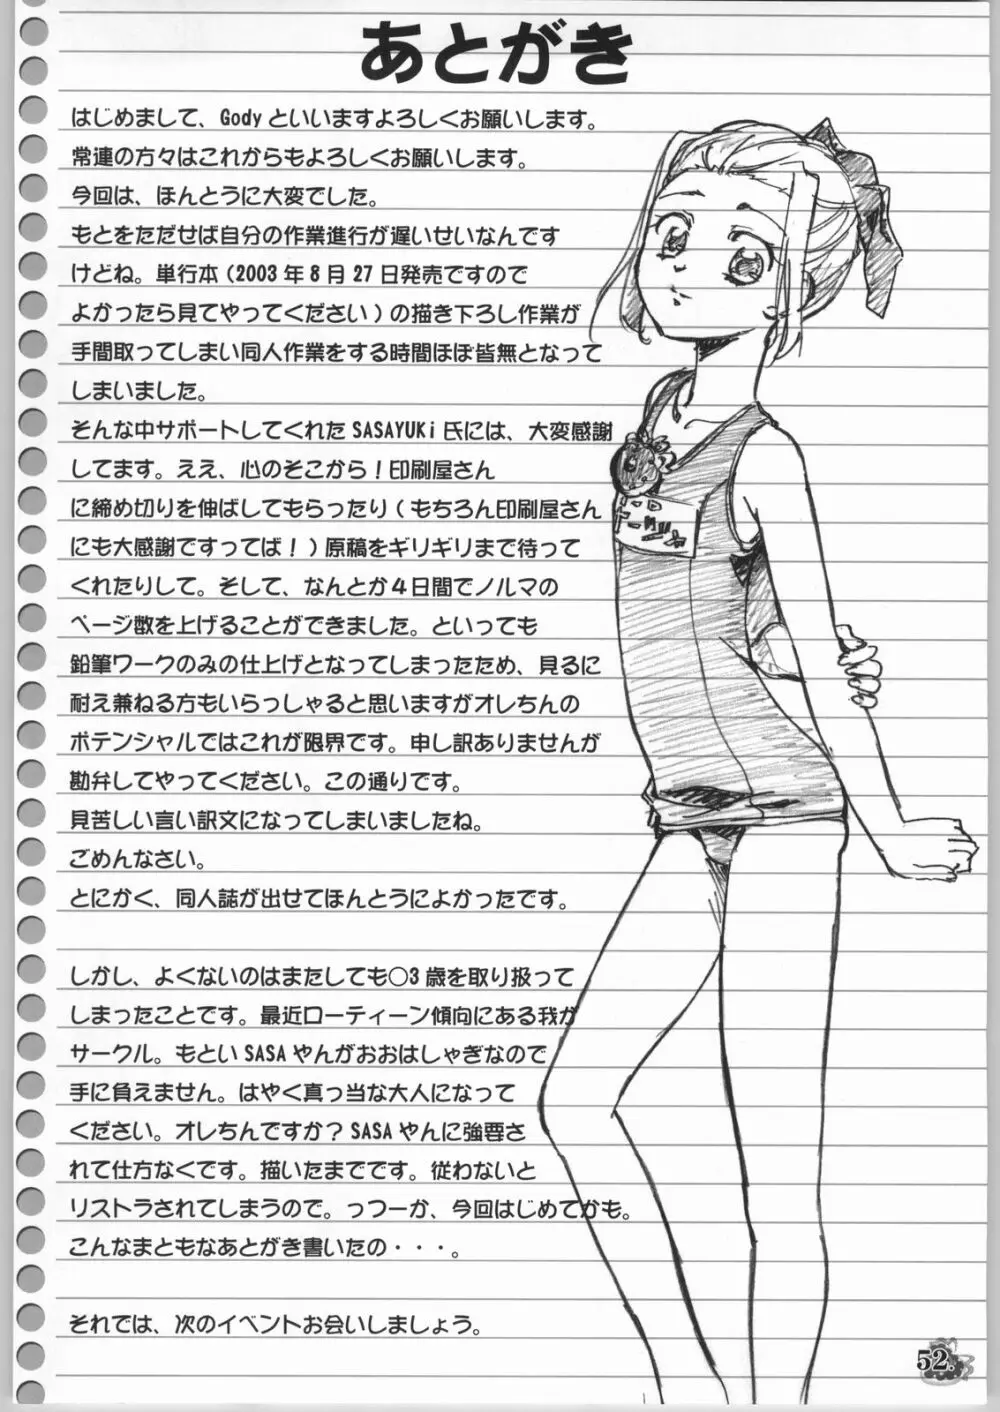 あとがき
はじめまして、Godyといいますよろしくお願いします。
常連の方々はこれからもよろしくお願いします。
今回は、ほんとうに大変でした。
もとをただせば自分の作業進行が遅いせいなんです
けどね。単行本（2003年8月27日発売ですので
よかったら見てやってください）の描き下ろし作業が
手間取ってしまい同人作業をする時間ほぼ皆無となって
しまいました。
そんな中サポートしてくれたSASAYUKi氏には、大変感謝
してます。ええ、心のそこから！印刷屋さん
に締め切りを伸ばしてもらったり（もちろん印刷屋さん
にも大感謝ですってば！）原稿をギリギリまで待って
くれたりして。そして、なんとか４日間でノルマの
ページ数を上げることができました。といっても
鉛筆ワークのみの仕上げとなってしまったため、見るに
耐え兼ねる方もいらっしゃると思いますがオレちんの
ポテンシャルではこれが限界です。申し訳ありませんが
勘弁してやってください。この通りです。
見苦しい言い訳文になってしまいましたね。
ごめんなさい。
とにかく、同人誌が出せてほんとうによかったです。
しかし、よくないのはまたしても○3歳を取り扱って
しまったことです。最近ローティーン傾向にある我が
サークル。もといSASAやんがおおはしゃぎなので
手に負えません。はやく真っ当な大人になって
ください。オレちんですか？SASAやんに強要さ
れて仕方なくです。描いたまでです。従わないと
リストラされてしまうので。っつーか、今回はじめてかも。
こんなまともなあとがき書いたの・・・。
それでは、次のイベントお会いしましょう。
52.